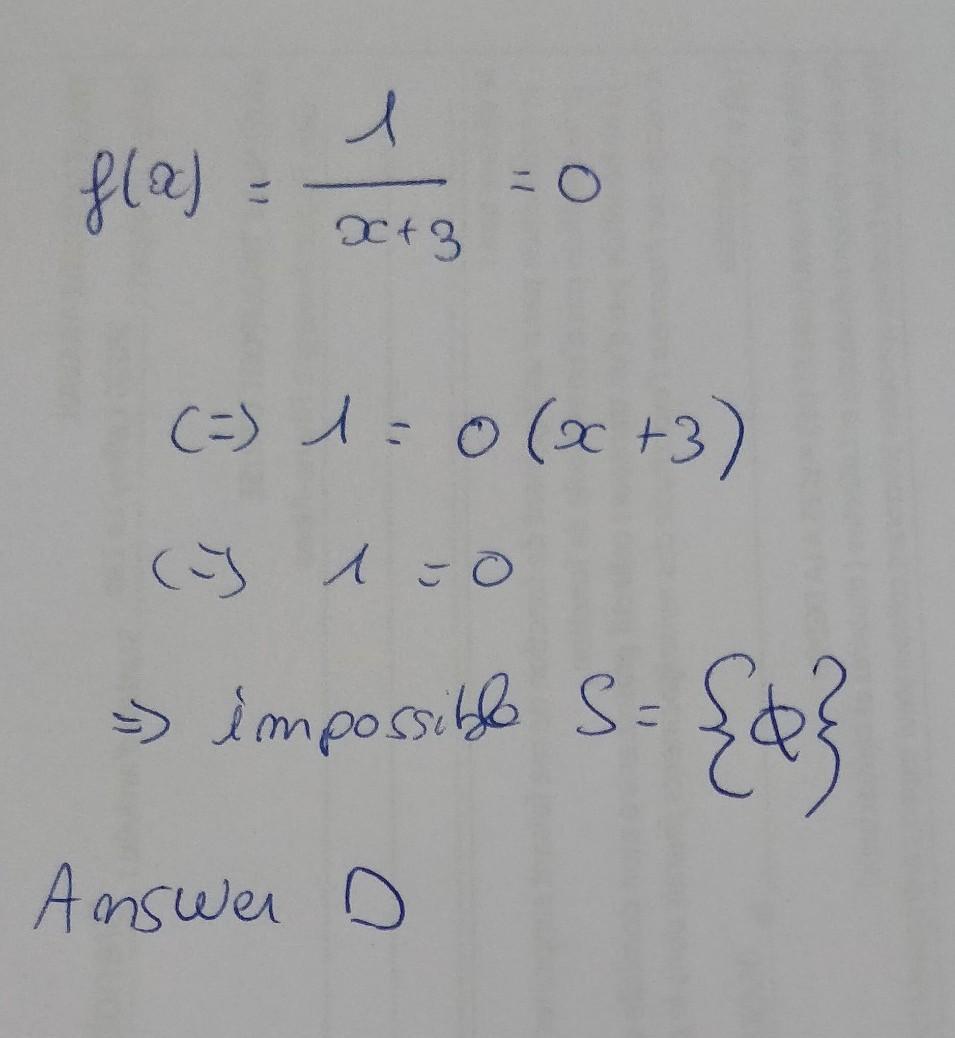 f(x) = 1/(x+3) = 0
(=) 1 = 0 (x + 3)
(=) 1 = 0
=> impossible S = {ϕ}
Answer D